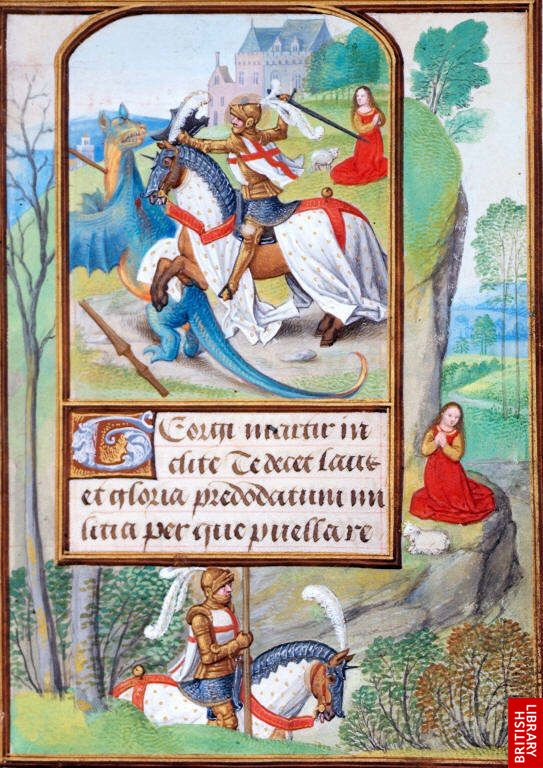 Georgi martir in
clite Te decet laus
et gloria predodatum mi
litia per que puella re
BRITISH
LIBRARY